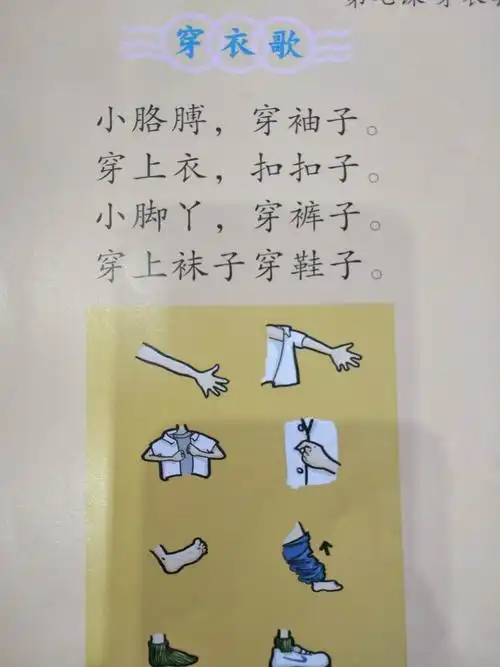 穿衣歌
小胳膊，穿袖子。
穿上衣，扣扣子。
小脚丫，穿裤子。
穿上袜子穿鞋子。